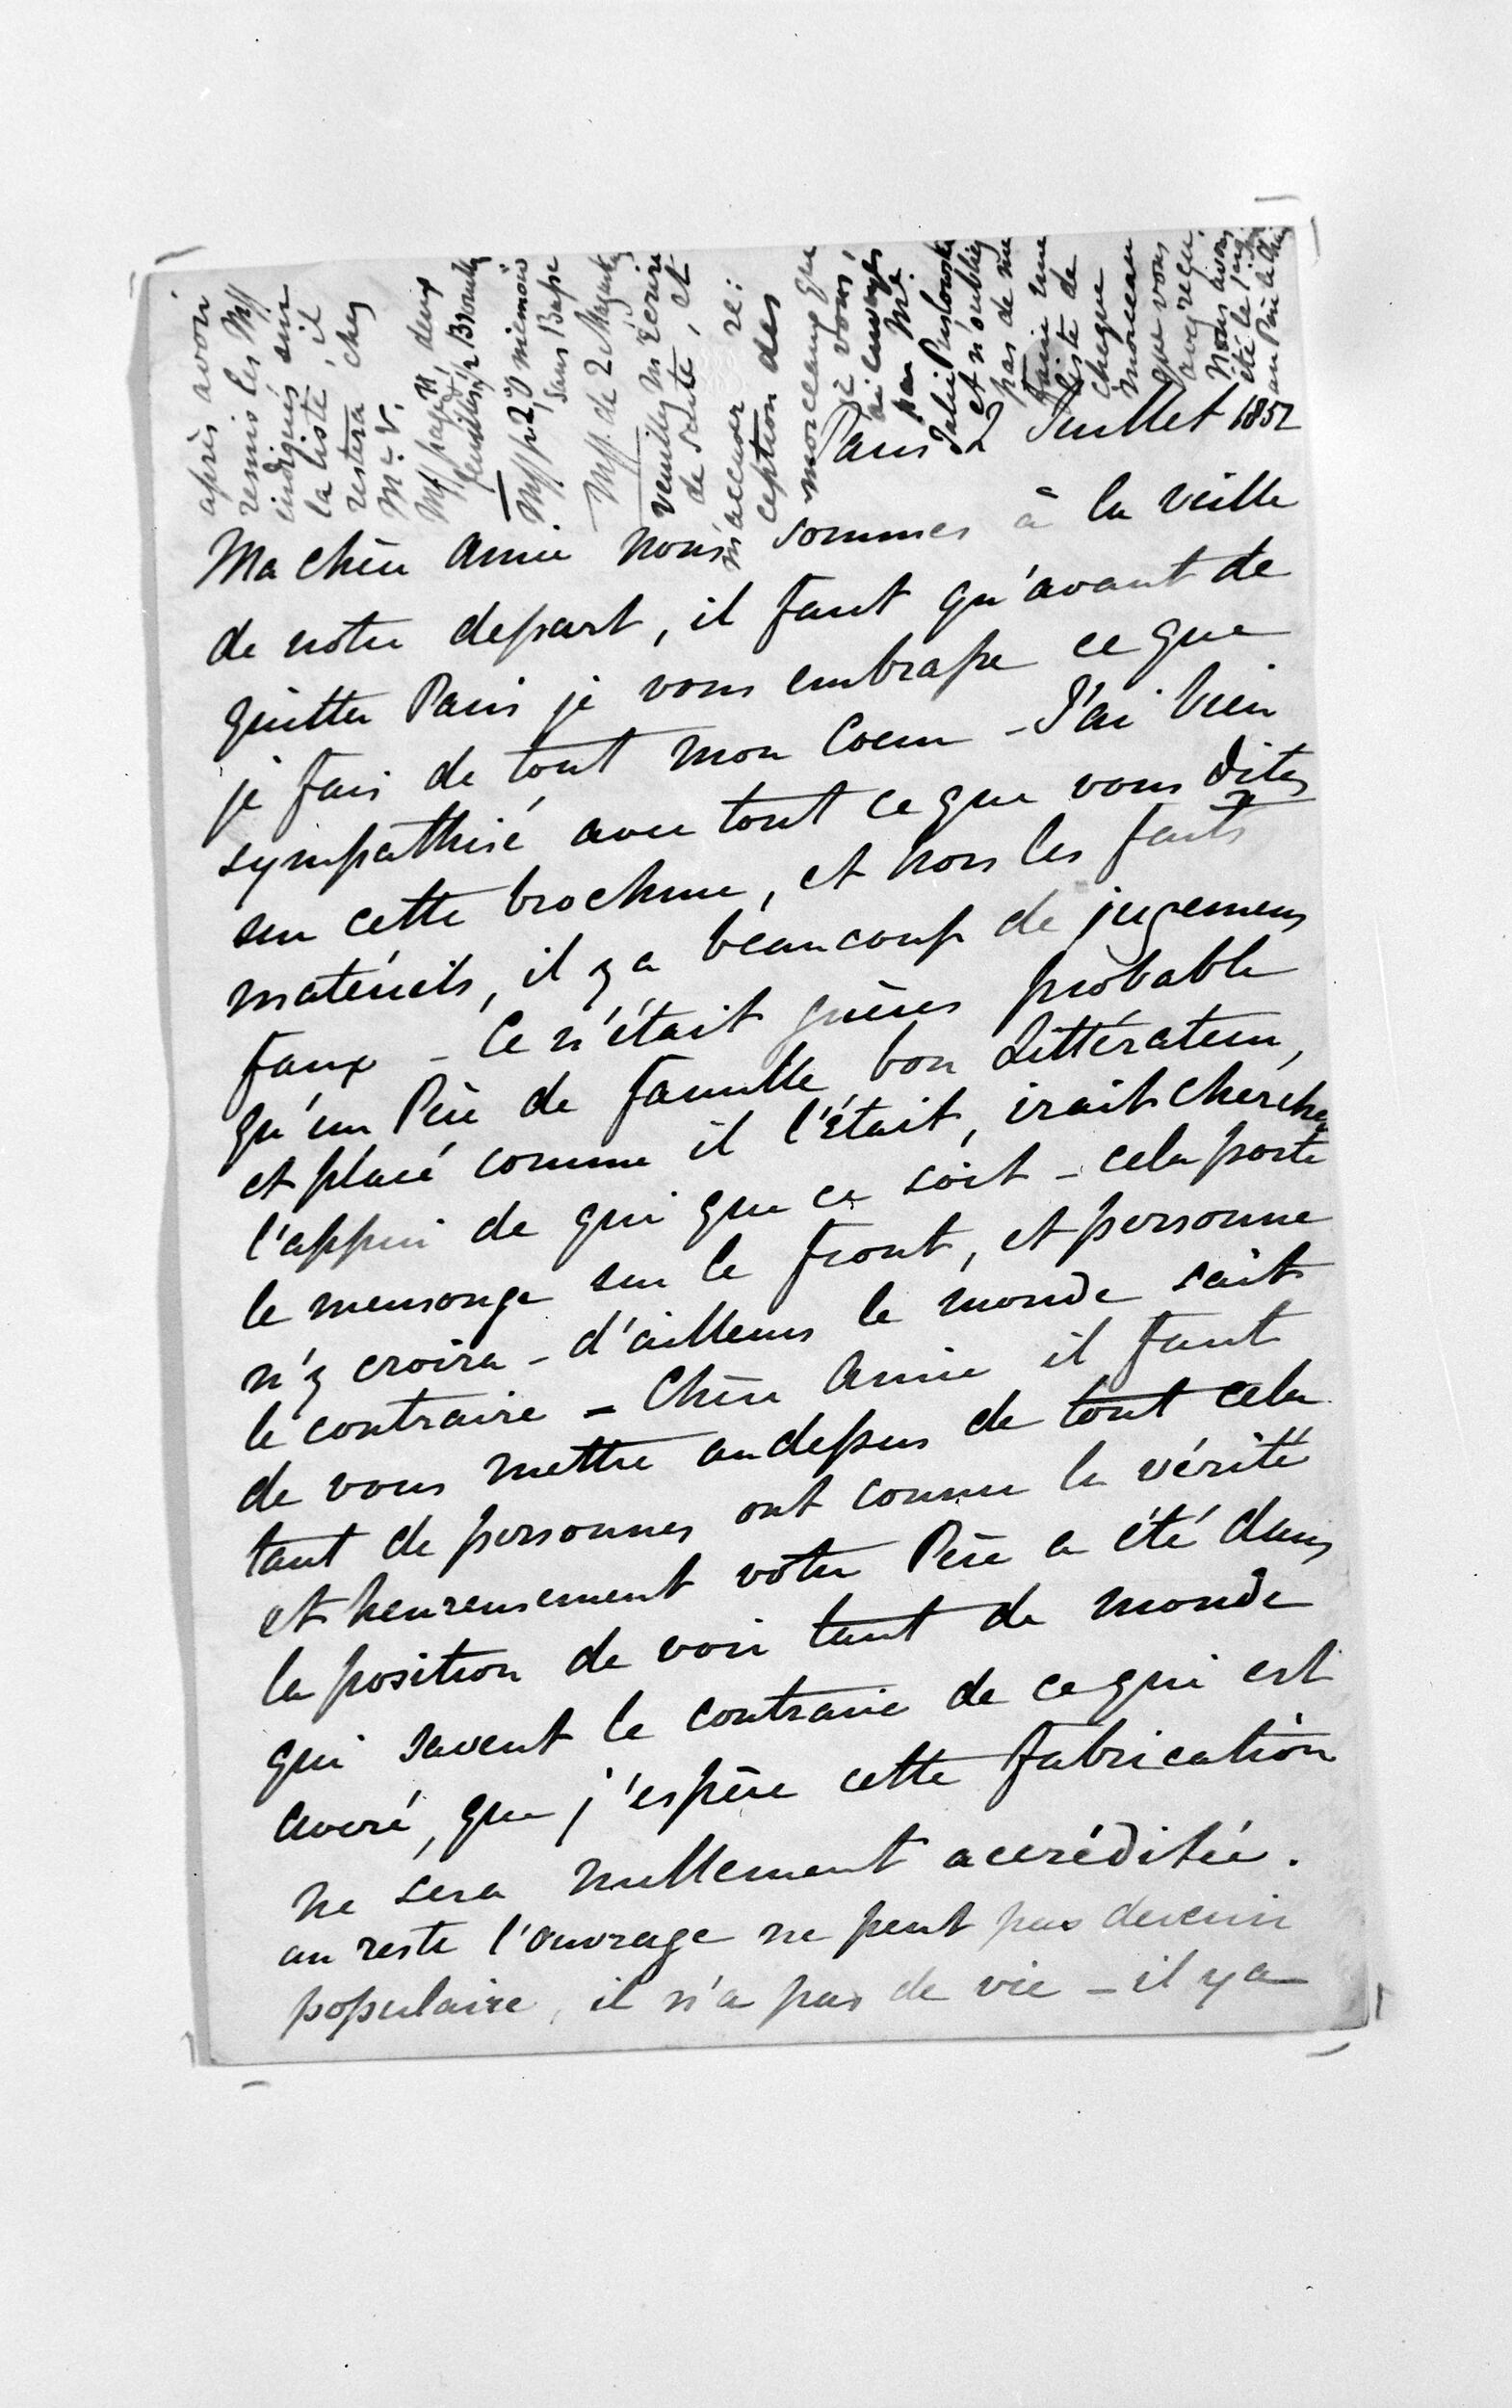 Paris 2 Juillet 1852
Ma chère Amie nous sommes à la veille
de notre depart, il faut qu'avant de
quitter Paris je vous embrasse ce que
je fais de tout mon Coeur – J'ai bien
sympathisé avec tout ce que vous dites
sur cette brochure, et hors les faits
matériels, il y a beaucoup de jugemens
faux – Ce n'était guères probable
qu'un Père de famille bon Littérateur,
et placé comme il l'était, irait chercher
l'appui de qui que ce soit – cela porte
le mensonge sur le front, et personne
n'y croira – d'ailleurs le monde sait
le contraire – Chère Amie il faut
de vous mettre audessus de tout cela
tant de personnes ont connu la vérité
et heureusement votre Père a été dans
la position de voir tant de monde
qui savent le contraire de ce qui est
averé, que j'espère cette fabrication
ne sera nullement accréditée.
au reste l'ouvrage ne peut pas devenir
populaire, il n'a pas de vie – il y a
après avoir
remis les Mss
indiqués sur
la liste, il
restera chez
Mss pages deux
Mss p. 20
sans Basse
Mss. de 2
veuillez m'écrire
de suite, et
m'accuser ré:
ception des
morceaux que
je vous
ai envoyés
par Me
Julie
et n'oubliez
pas de me
faire une
liste de
chaque
morceau
que vous
avez reçu.
Nous avons
été